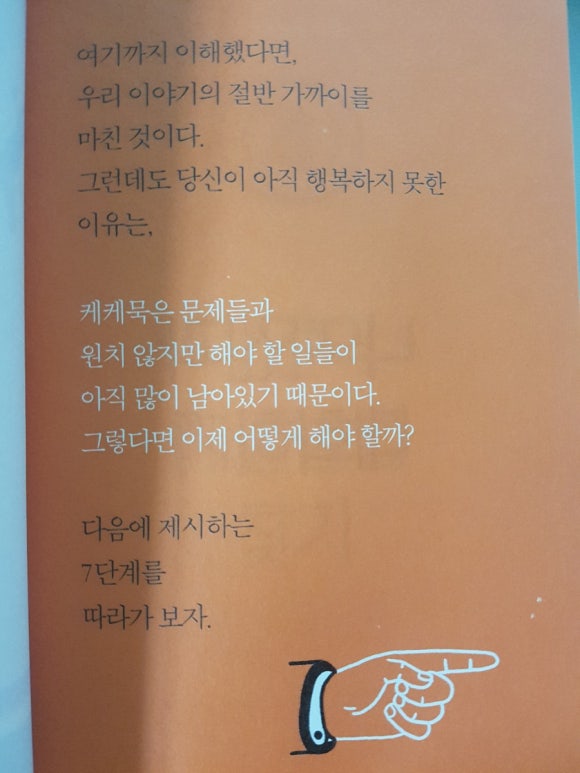 여기까지 이해했다면,
우리 이야기의 절반 가까이를
마친 것이다.
그런데도 당신이 아직 행복하지 못한
이유는,
케케묵은 문제들과
원치 않지만 해야 할 일들이
아직 많이 남아있기 때문이다.
그렇다면 이제 어떻게 해야 할까?
다음에 제시하는
7단계를
따라가 보자.